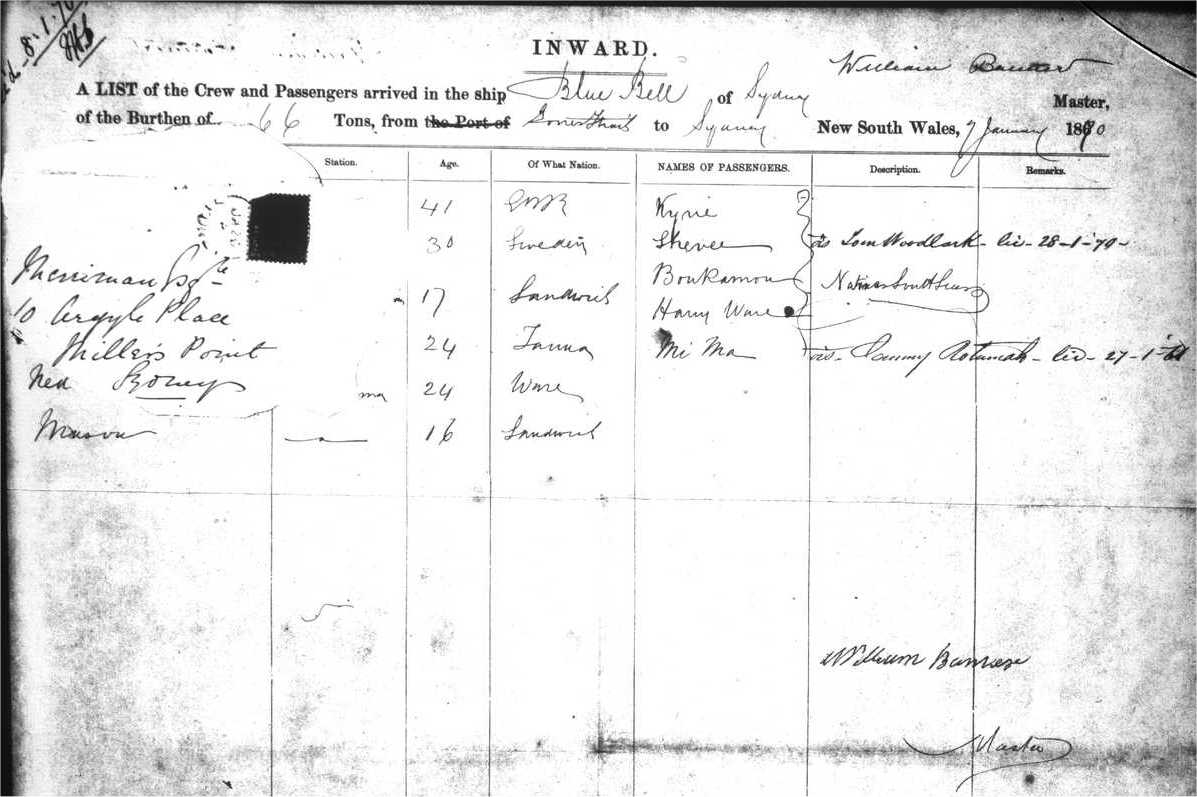 8.1.70
INWARD.
William
A LIST of the Crew and Passengers arrived in the ship Blue Bell of Sydney Master,
of the Burthen of 66 Tons, from the Port of Torres Straits to Sydney New South Wales, 7 January 1870
Station. Age. Of What Nation. NAMES OF PASSENGERS. Description. Remarks.
41 Kyrie
30 Sweden as Tom Woodlark - liv - 28-1-70 -
Merriman Boukamou Natives South Seas
17 Sandwich Harry Ware
10 Argyle Place
24 Tanna Mi Ma as - Sammy Rotumah - liv - 27-1-
Miller's Point
Ned Sydney ma 24 Ware
Mason 16 Sandwich
William
Master